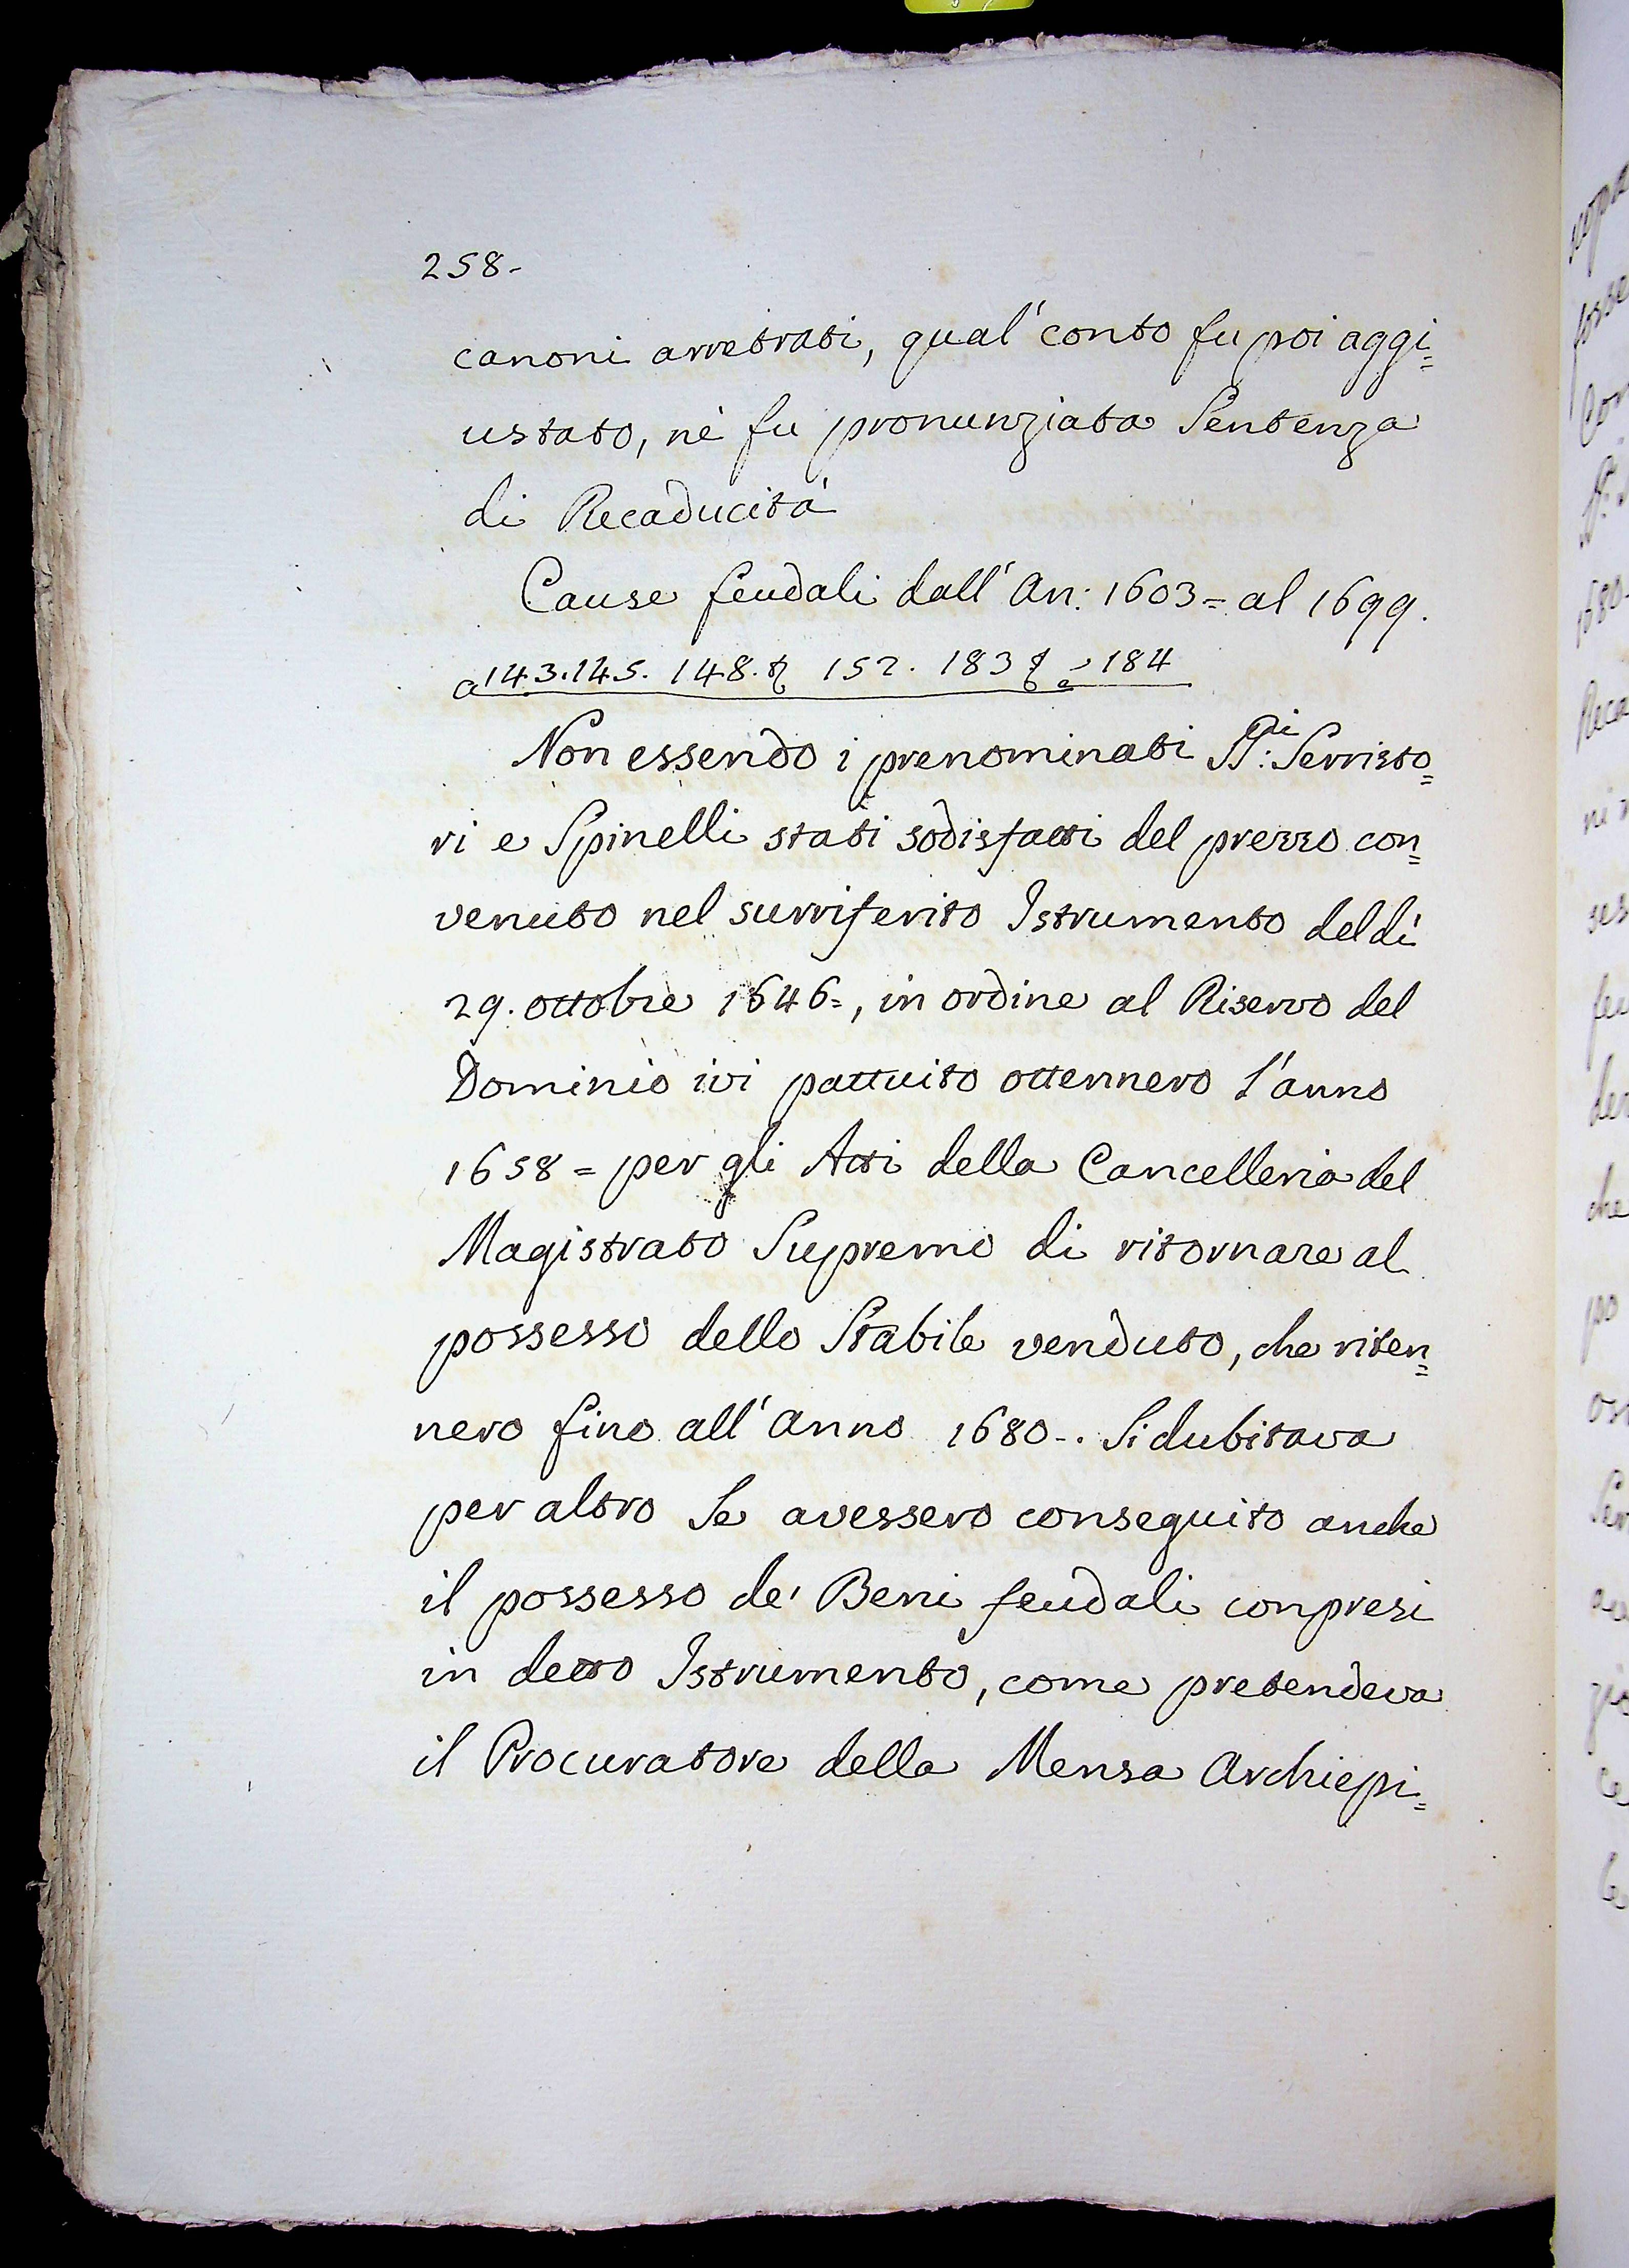 258-
canoni arretrati, qual' conto fu poi aggi=
ustato, nè fu pronunziata Sentenza
di Recaducità
Cause feudali dall' An: 1603= al 1699.
a 143. 145. 148. 152. 183 184
Non essendo i prenominati SS:ri Serristo=
ri e Spinelli stati sodisfatti del prezzo con=
venuto nel surriferito Istrumento del dì
29. ottobre 1646=, in ordine al Riservo del
Dominio ivi pattuito ottennero l'anno
1658= per gli Atti della Cancelleria del
Magistrato Supremo di ritornare al
possesso dello Stabile venduto, che riten=
nero fino all' Anno 1680-. Si dubitava
per altro Se avessero conseguito anche
il possesso de' Beni feudali conpresi
in detto Istrumento, come pretendeva
il Procuratore della Mensa Archiepi=